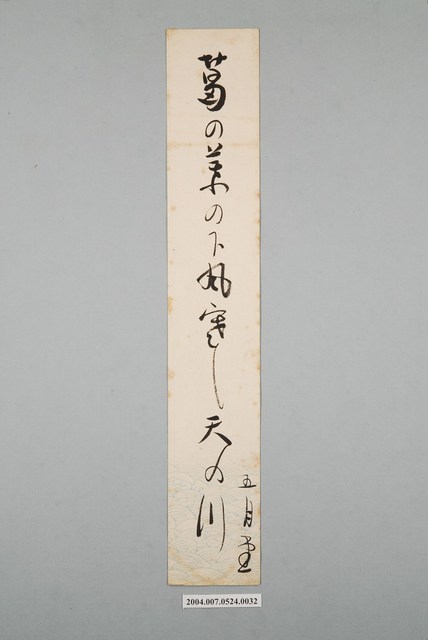 葛の葉の下風寒し天の川
五月堂
2004.007.0524.0032